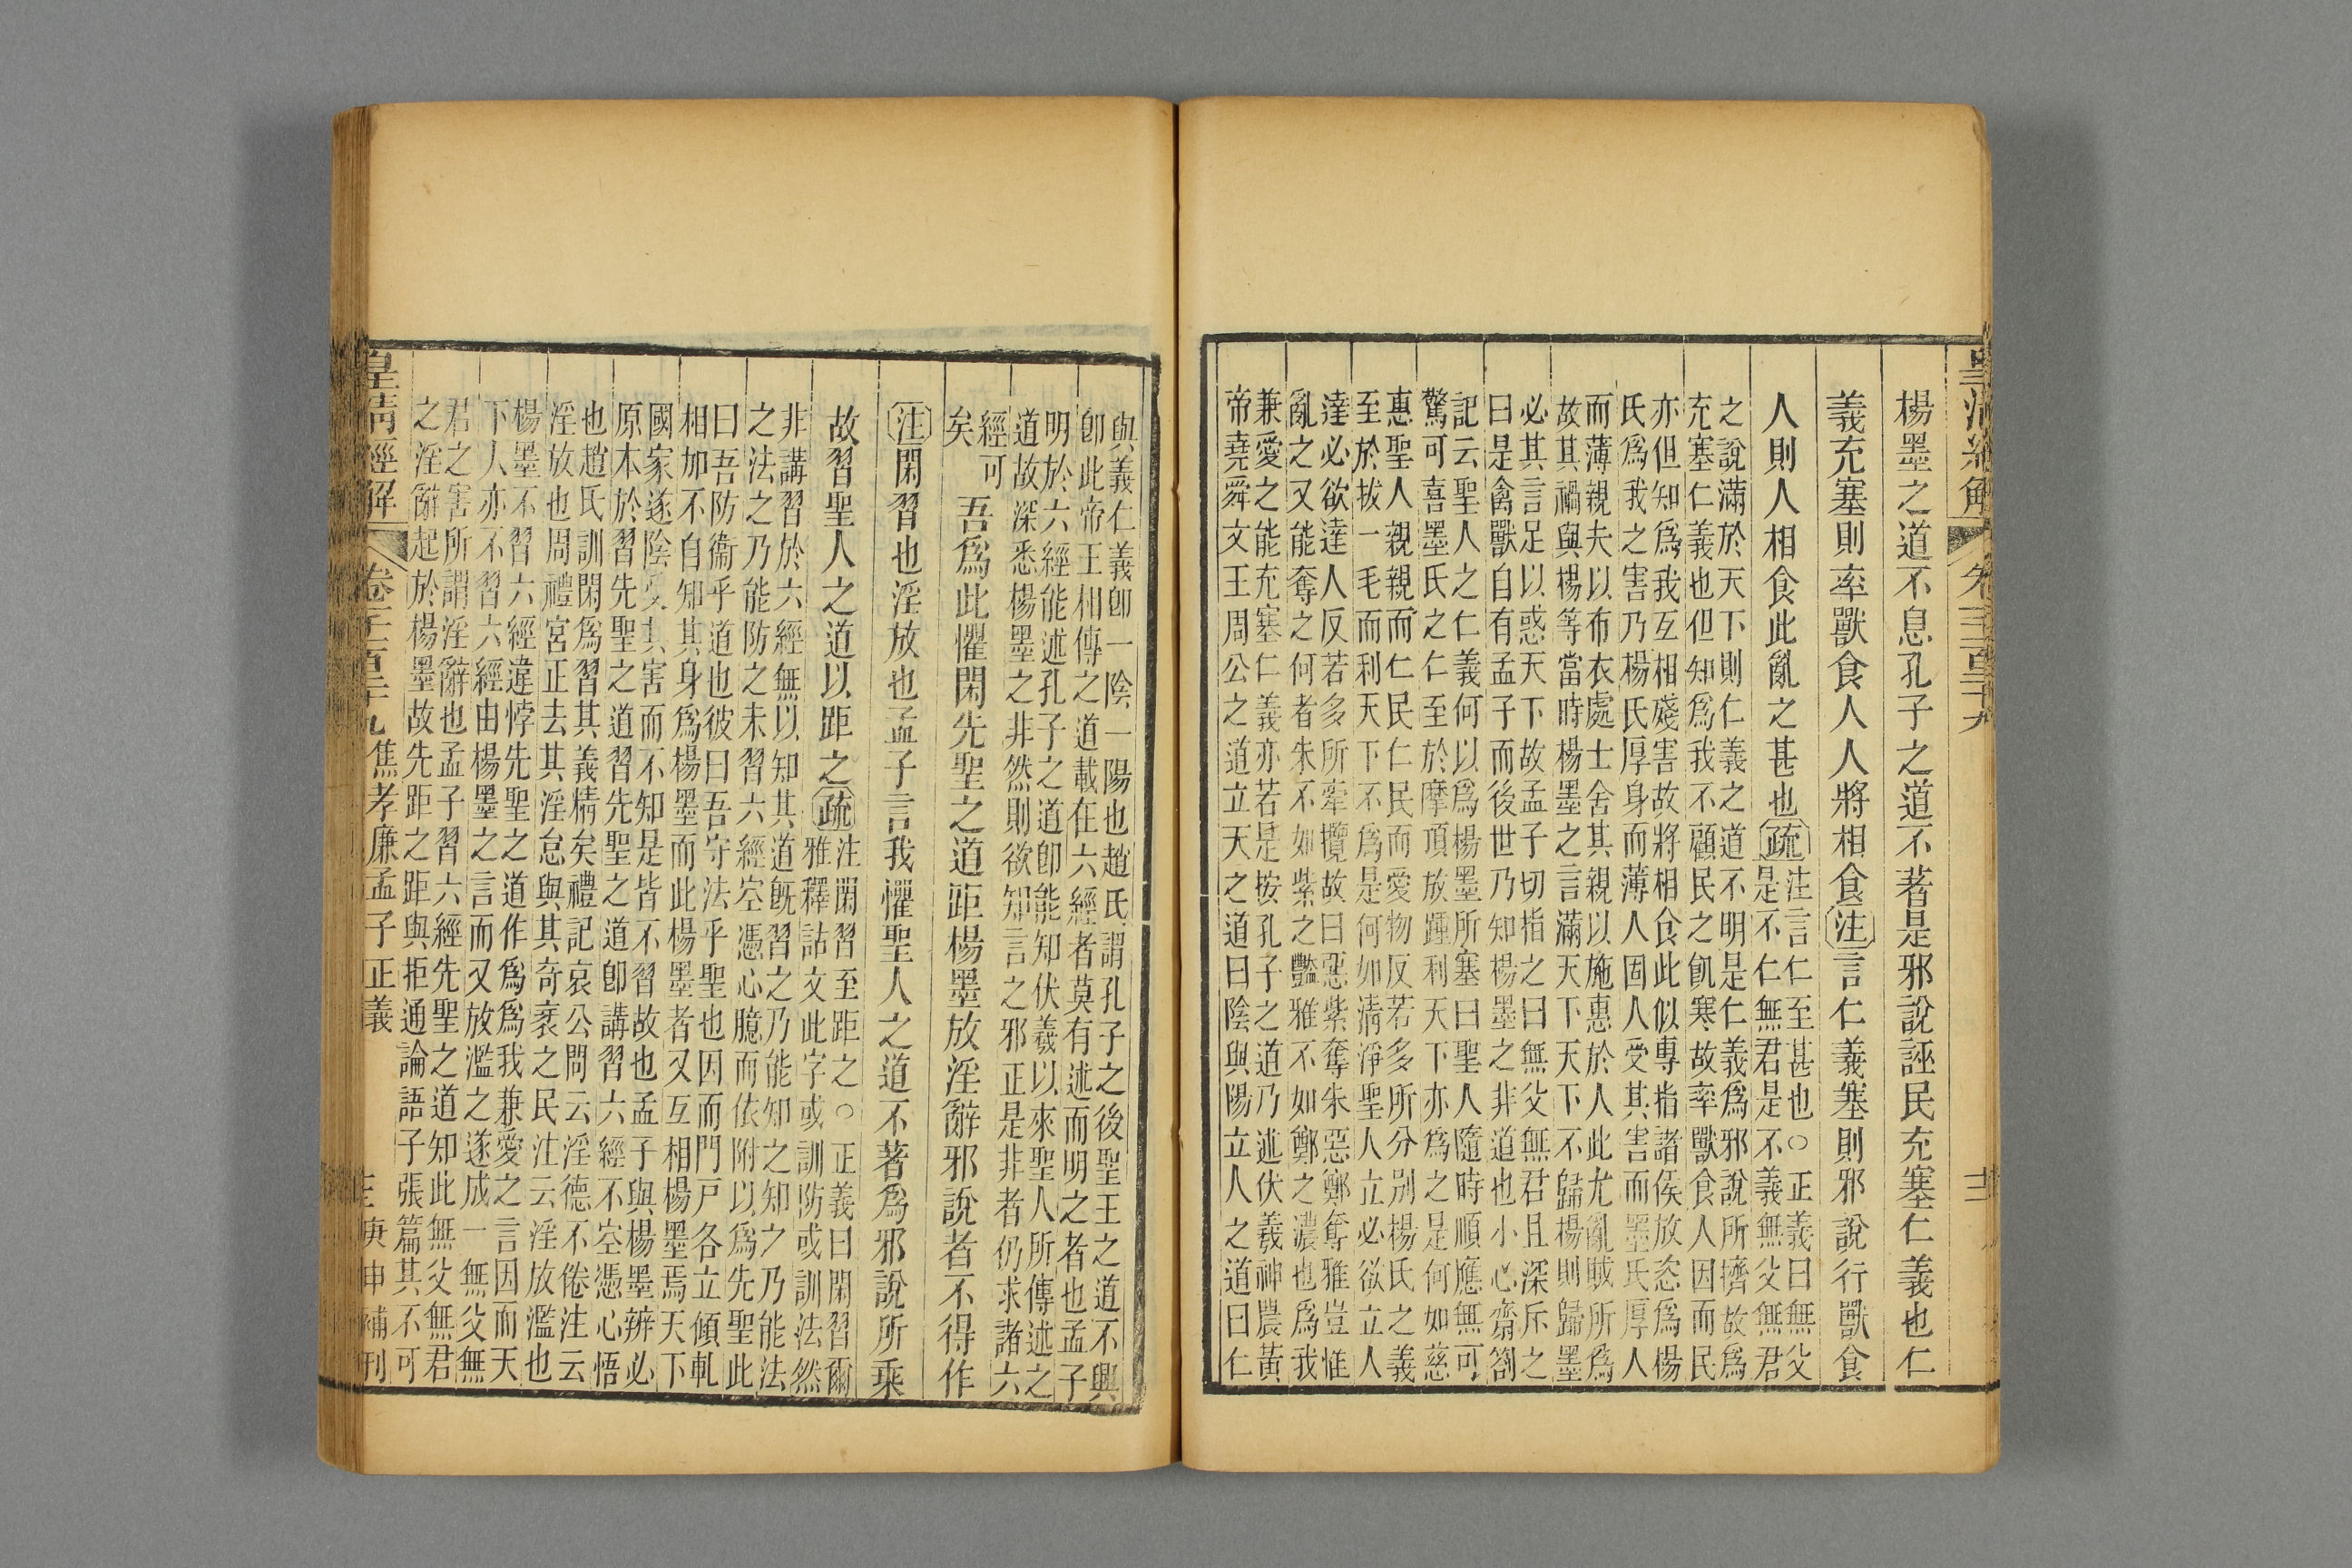 楊墨之道不息孔子之道不著是邪說誣民充塞仁義也仁
義充塞則率獸食人人將相食注言仁義塞則邪說行獸食
人則人相食此亂之甚也疏
注言仁至甚也○正義曰無父
是不仁無君是不義無父無君
之說滿於天下則仁義之道不明是仁義爲邪說所擠故爲
充塞仁義也但知爲我不顧民之飢寒故率獸食人因而民
亦但知爲我互相殘害故將相食此似專指諸侯放恣爲楊
氏爲我之害乃楊氏厚身而薄人固人受其害而墨氏厚人
而薄親夫以布衣處士舍其親以施惠於人此尤亂賊所爲
故其禍與楊等當時楊墨之言滿天下天下不歸楊則歸墨
必其言足以惑天下故孟子切指之曰無父無君且深斥之
曰是禽獸自有孟子而後世乃知楊墨之非道也小心齋劄
記云聖人之仁義何以爲楊墨所塞曰聖人隨時順應無可
驚可喜墨氏之仁至於摩頂放踵利天下亦爲之是何如慈
惠聖人親親而仁民仁民而愛物反若多所分別楊氏之義
至於拔一毛而利天下不爲是何如淸淨聖人立必欲立人
達必欲達人反若多所牽攬故曰惡紫奪朱惡鄭奪雅豈惟
亂之又能奪之何者朱不如紫之豔雅不如鄭之濃也爲我
兼愛之能充塞仁義亦若是按孔子之道乃述伏羲神農黃
帝堯舜文王周公之道立天之道曰陰與陽立人之道曰仁
與義仁義卽一陰一陽也趙氏謂孔子之後聖王之道不興
卽此帝王相傳之道載在六經者莫有述而明之者也孟子
明於六經能述孔子之道卽能知伏羲以來聖人所傳述之
道故深悉楊墨之非然則欲知言之邪正是非者仍求諸六
經可
矣
吾爲此懼閑先聖之道距楊墨放淫辭邪說者不得作
注閑習也淫放也孟子言我懼聖人之道不著爲邪說所乘
故習聖人之道以距之疏
注閑習至距之○正義曰閑習爾
雅釋詁文此字或訓防或訓法然
非講習於六經無以知其道旣習之乃能知之知之乃能法
之法之乃能防之未習六經空憑心臆而依附以爲先聖此
曰吾防衞乎道也彼曰吾守法乎聖也因而門戸各立傾軋
相加不自知其身爲楊墨而此楊墨者又互相楊墨焉天下
國家遂陰受其害而不知是皆不習故也孟子與楊墨辨必
原本於習先聖之道習先聖之道卽講習六經不空憑心悟
也趙氏訓閑爲習其義精矣禮記哀公問云淫德不倦注云
淫放也周禮宮正去其淫怠與其奇衺之民注云淫放濫也
楊墨不習六經違悖先聖之道作爲爲我兼愛之言因而天
下人亦不習六經由楊墨之言而又放濫之遂成一無父無
君之害所謂淫辭也孟子習六經先聖之道知此無父無君
之淫辭起於楊墨故先距之距與拒通論語子張篇其不可
皇淸經解 焦孝廉孟子正義 庚申補刊